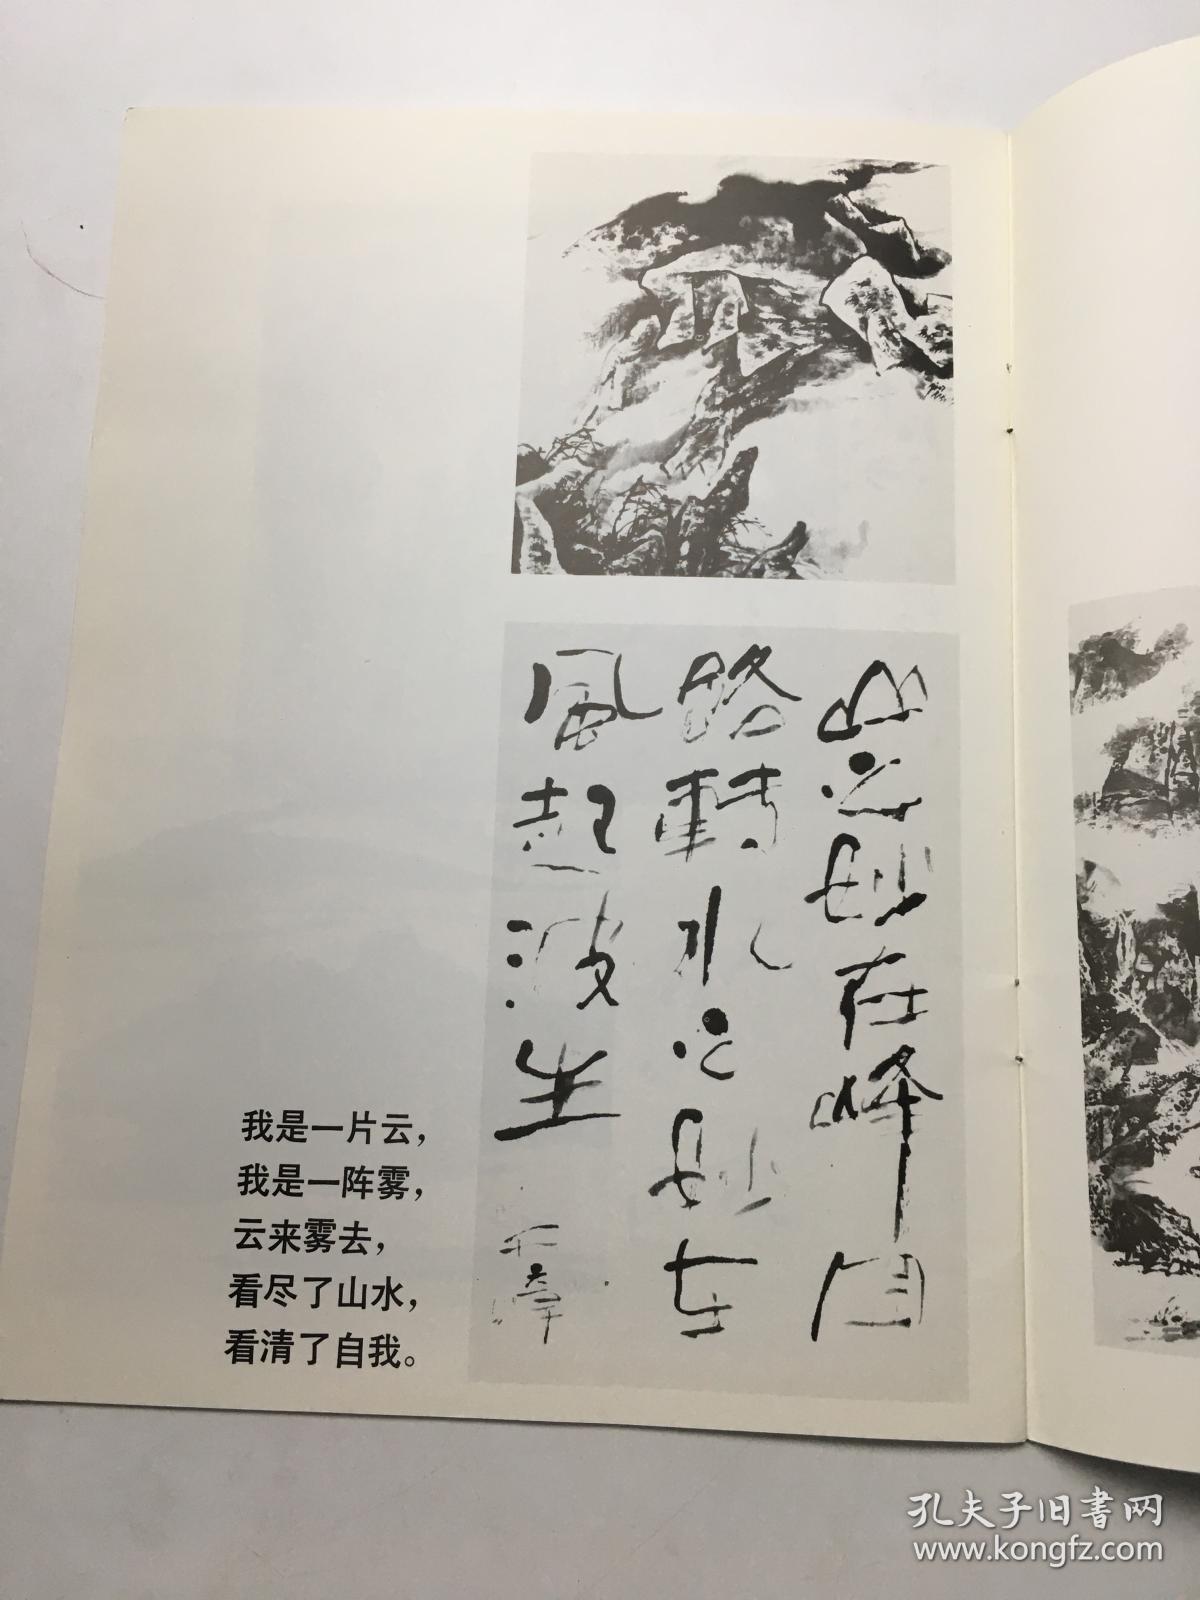 山之妙在峰回
路轉水之妙在
風起波生
我是一片云，
我是一阵雾，
云来雾去，
看尽了山水，
看清了自我。
孔夫子旧书网
www.kongfz.com